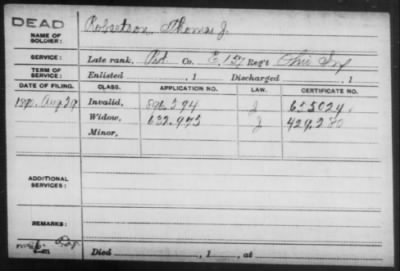 DEAD
NAME OF SOLDIER: Robertson, Thomas J.
SERVICE: Late rank, Pvt Co. E, 127 Reg't Ohio Inf
TERM OF SERVICE: Enlisted , 1 Discharged , 1
DATE OF FILING. CLASS. APPLICATION NO. LAW. CERTIFICATE NO.
1890, Aug 29 Invalid, 394 J
Widow, 632.973 J 429.280
Minor,
ADDITIONAL SERVICES:
REMARKS:
Died , 1 , at